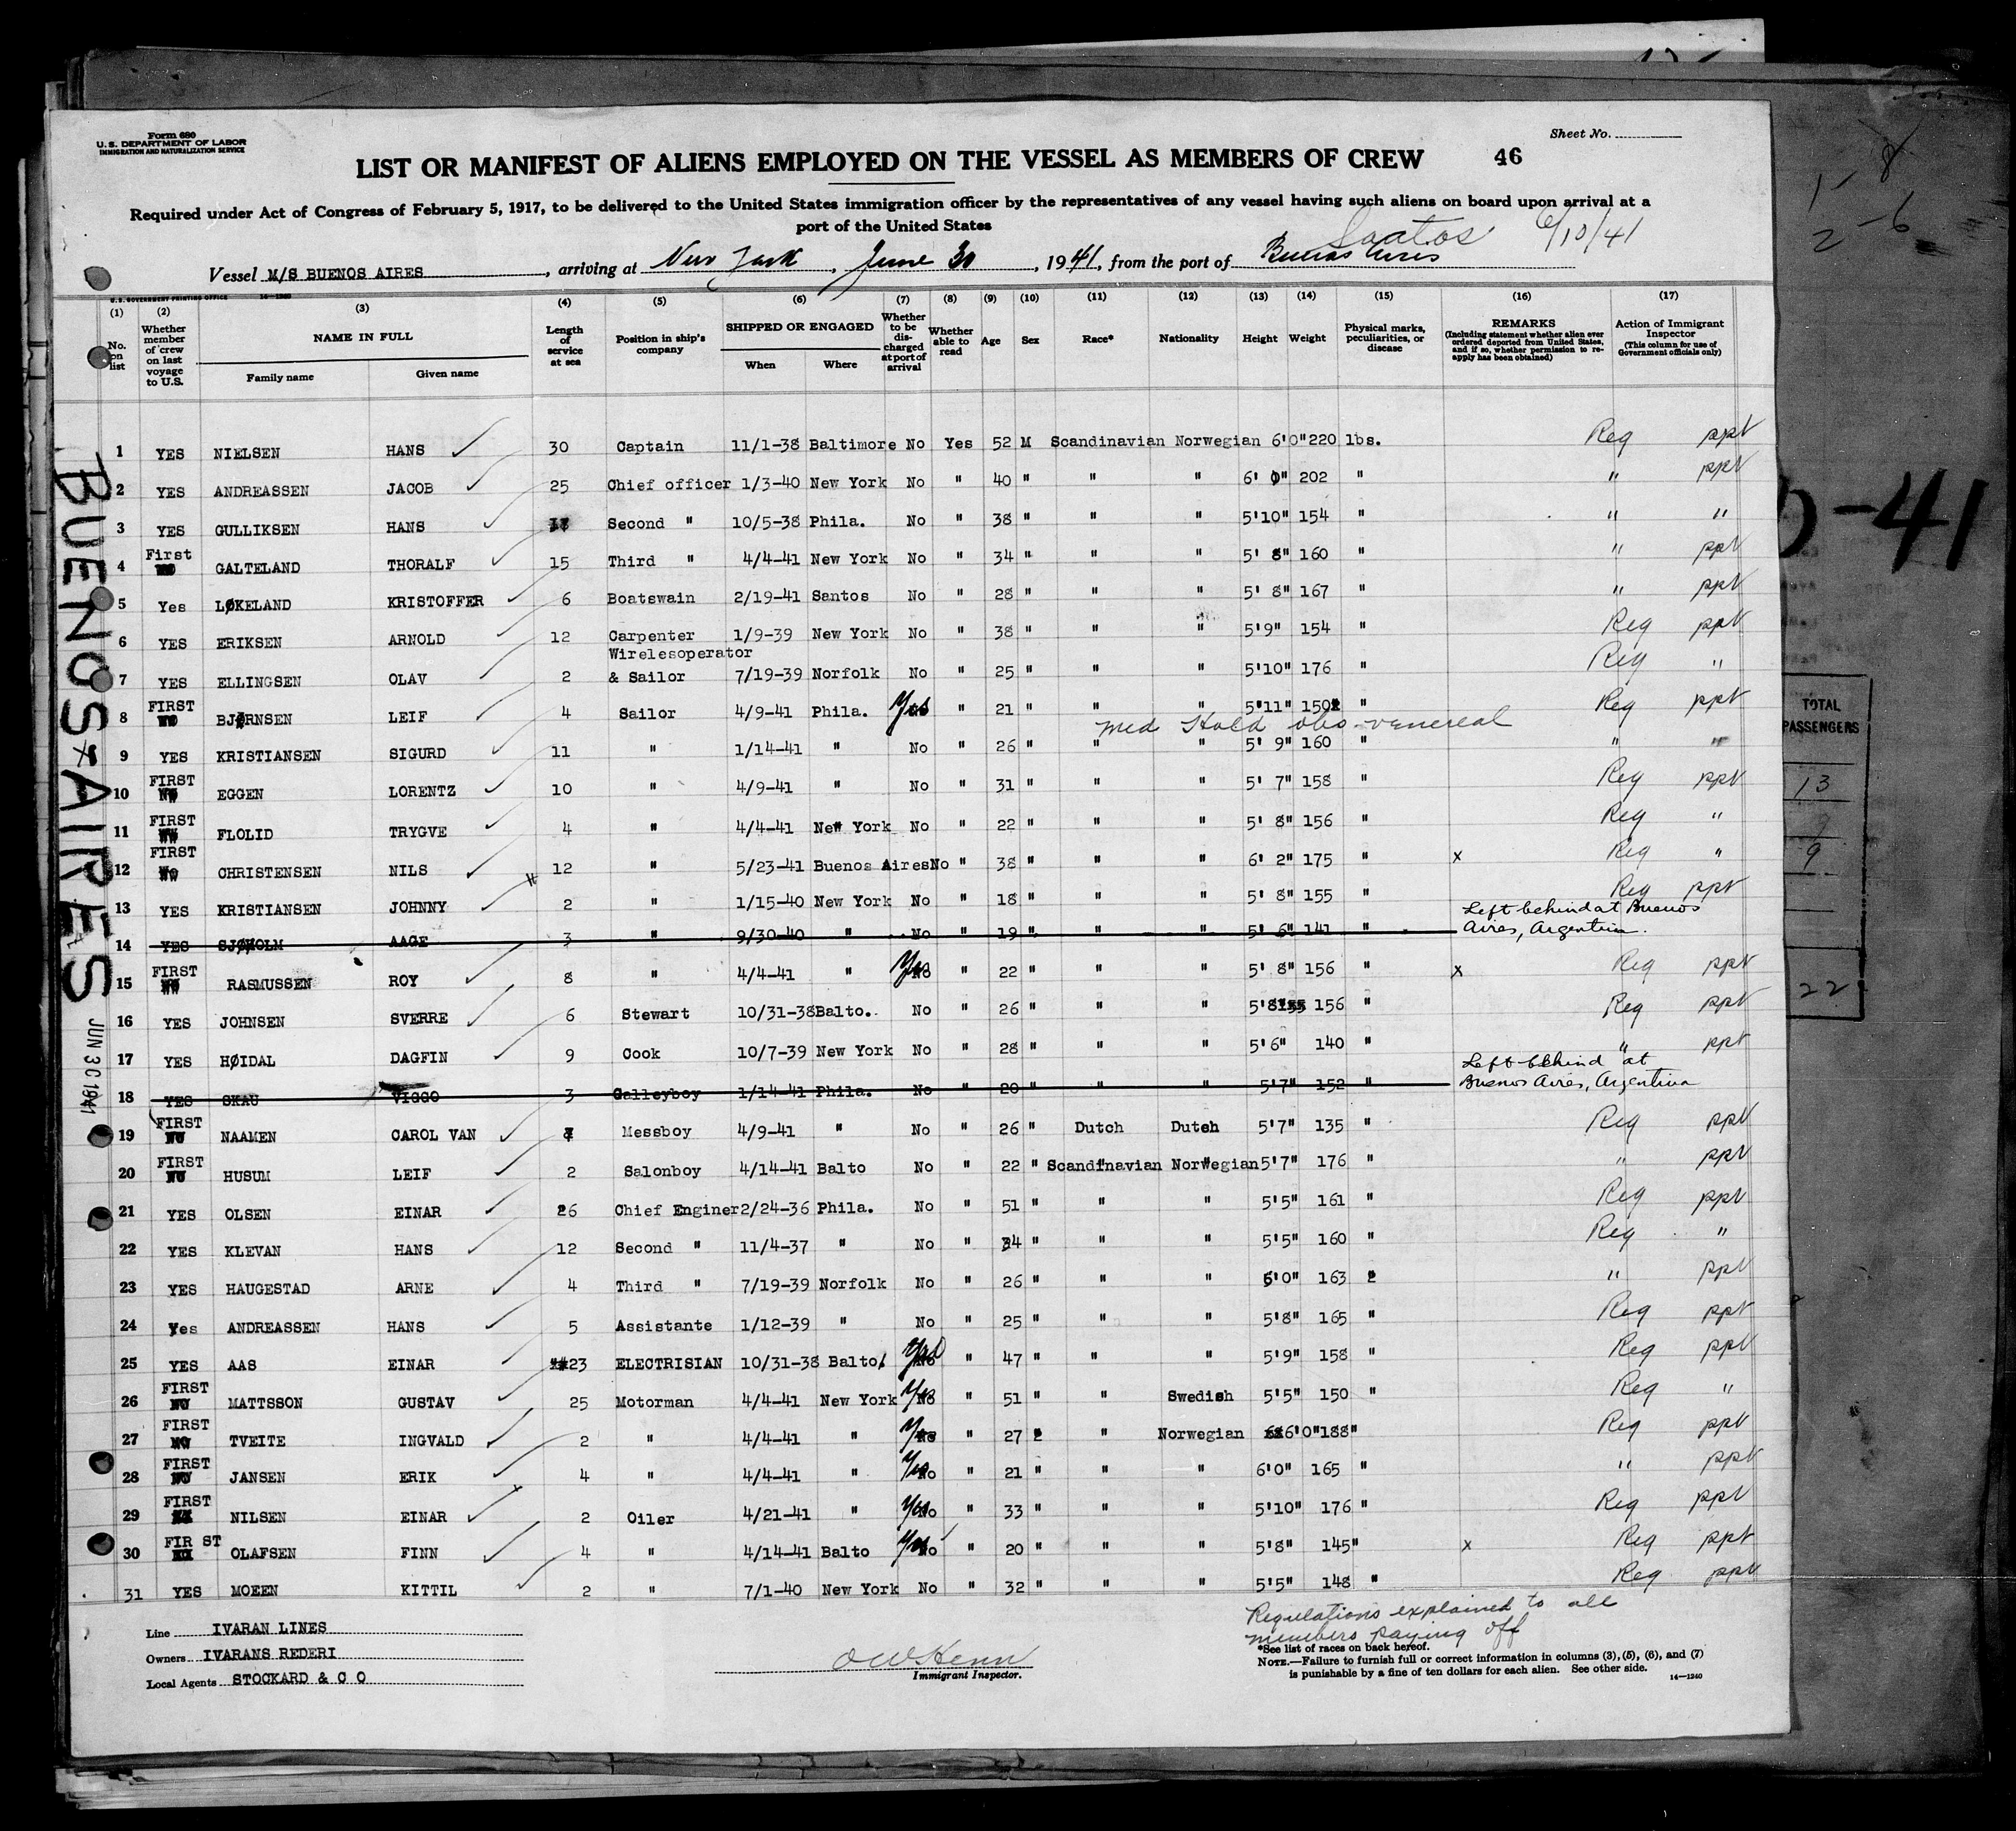 Form 680
U. S. DEPARTMENT OF LABOR
IMMIGRATION AND NATURALIZATION SERVICE
Sheet No.
LIST OR MANIFEST OF ALIENS EMPLOYED ON THE VESSEL AS MEMBERS OF CREW 46
Required under Act of Congress of February 5, 1917, to be delivered to the United States immigration officer by the representatives of any vessel having such aliens on board upon arrival at a
port of the United States
Santos 6/10/41
Vessel M/S BUENOS AIRES, arriving at New York, June 30, 1941, from the port of Buenos Aires
U. S. GOVERNMENT PRINTING OFFICE 14-1240
(1) (2) (3) (4) (5) (6) (7) (8) (9) (10) (11) (12) (13) (14) (15) (16) (17)
No. on list
Whether member of crew on last voyage to U.S.
NAME IN FULL
Family name Given name
Length of service at sea
Position in ship's company
SHIPPED OR ENGAGED
When Where
Whether to be discharged at port of arrival
Whether able to read
Age
Sex
Race*
Nationality
Height
Weight
Physical marks, peculiarities, or disease
REMARKS
(Including statement whether alien ever ordered deported from United States, and if so, whether permission to reapply has been obtained)
Action of Immigrant Inspector
(This column for use of Government officials only)
1 YES NIELSEN HANS 30 Captain 11/1-38 Baltimore No Yes 52 M Scandinavian Norwegian 6'0" 220 lbs. Reg ppt
2 YES ANDREASSEN JACOB 25 Chief officer 1/3-40 New York No " 40 " " " 6' 0" 202 " " ppt
3 YES GULLIKSEN HANS Second " 10/5-38 Phila. No " 38 " " " 5'10" 154 " " "
4 First GALTELAND THORALF 15 Third " 4/4-41 New York No " 34 " " " 5' 8" 160 " " ppt
5 Yes LØKELAND KRISTOFFER 6 Boatswain 2/19-41 Santos No " 28 " " " 5' 8" 167 " " ppt
6 YES ERIKSEN ARNOLD 12 Carpenter 1/9-39 New York No " 38 " " " 5'9" 154 " Reg ppt
Wirelesoperator
7 YES ELLINGSEN OLAV 2 & Sailor 7/19-39 Norfolk No " 25 " " " 5'10" 176 " Reg "
8 FIRST BJØRNSEN LEIF 4 Sailor 4/9-41 Phila. Yes " 21 " " " 5'11" 150 " Reg ppt
med Hold obs venereal
9 YES KRISTIANSEN SIGURD 11 " 1/14-41 " No " 26 " " " 5' 9" 160 " " "
10 FIRST EGGEN LORENTZ 10 " 4/9-41 " No " 31 " " " 5' 7" 158 " Reg ppt
11 FIRST FLOLID TRYGVE 4 " 4/4-41 New York No " 22 " " " 5' 8" 156 " Reg "
12 FIRST CHRISTENSEN NILS 12 " 5/23-41 Buenos Aires No " 38 " " " 6' 2" 175 " x Reg "
13 YES KRISTIANSEN JOHNNY 2 " 1/15-40 New York No " 18 " " " 5' 8" 155 " Reg ppt
14 YES SJØHOLM AAGE 3 " 9/30-40 " No " 19 " " " 5' 6" 141 " Left behind at Buenos
Aires, Argentina.
15 FIRST RASMUSSEN ROY 8 " 4/4-41 " Yes " 22 " " " 5' 8" 156 " x Reg ppt
16 YES JOHNSEN SVERRE 6 Stewart 10/31-38 Balto. No " 26 " " " 5'8" 156 " Reg ppt
17 YES HØIDAL DAGFIN 9 Cook 10/7-39 New York No " 28 " " " 5'6" 140 " " ppt
18 YES SKAU VIGGO 3 Galleyboy 1/14-41 Phila. No " 20 " " " 5'7" 152 " Left behind at
Buenos Aires, Argentina
19 FIRST NAAMEN CAROL VAN Messboy 4/9-41 " No " 26 " Dutch Dutch 5'7" 135 " Reg ppt
20 FIRST HUSUM LEIF 2 Salonboy 4/14-41 Balto No " 22 " Scandinavian Norwegian 5'7" 176 " " ppt
21 YES OLSEN EINAR 26 Chief Enginer 2/24-36 Phila. No " 51 " " " 5'5" 161 Reg ppt
22 YES KLEVAN HANS 12 Second " 11/4-37 " No " 34 " " " 5'5" 160 " Reg "
23 YES HAUGESTAD ARNE 4 Third " 7/19-39 Norfolk No " 26 " " " 6'0" 163 " " ppt
24 Yes ANDREASSEN HANS 5 Assistante 1/12-39 " No " 25 " " " 5'8" 165 " Reg ppt
25 YES AAS EINAR 23 ELECTRISIAN 10/31-38 Balto. Yes " 47 " " " 5'9" 158 " Reg ppt
26 FIRST MATTSSON GUSTAV 25 Motorman 4/4-41 New York Yes " 51 " " Swedish 5'5" 150 " Reg "
27 FIRST TVEITE INGVALD 2 " 4/4-41 " Yes " 27 " " Norwegian 6'0" 188 " Reg ppt
28 FIRST JANSEN ERIK 4 " 4/4-41 " Yes " 21 " " " 6'0" 165 " " ppt
29 FIRST NILSEN EINAR 2 Oiler 4/21-41 " Yes " 33 " " " 5'10" 176 " Reg ppt
30 FIR ST OLAFSEN FINN 4 " 4/14-41 Balto Yes " 20 " " " 5'8" 145 " x Reg ppt
31 YES MOEEN KITTIL 2 " 7/1-40 New York No " 32 " " " 5'5" 148 " Reg ppt
Regulations explained to all
members paying off
Line IVARAN LINES
Owners IVARANS REDERI
Local Agents STOCKARD & C O
Immigrant Inspector.
*See list of races on back hereof.
NOTE.—Failure to furnish full or correct information in columns (3), (5), (6), and (7)
is punishable by a fine of ten dollars for each alien. See other side.
14-1240
BUENOS AIRES
JUN 30 1941
-41
TOTAL
PASSENGERS
13
9
22